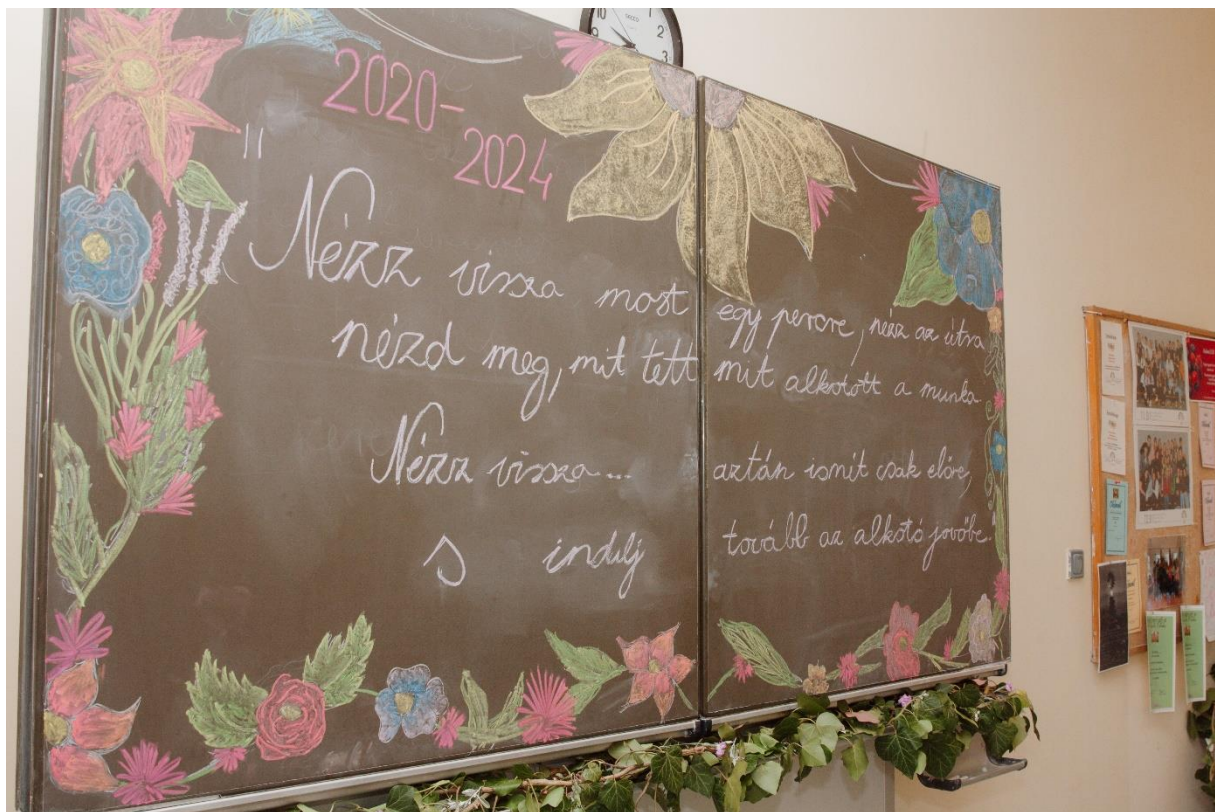 10
2
9
3
2020-
2024
"Nézz vissza most egy percre, nézz az útra
nézd meg, mit tett mit alkotott a munka
Nézz vissza... aztán ismét csak előre,
s indulj tovább az alkotó jövőbe."